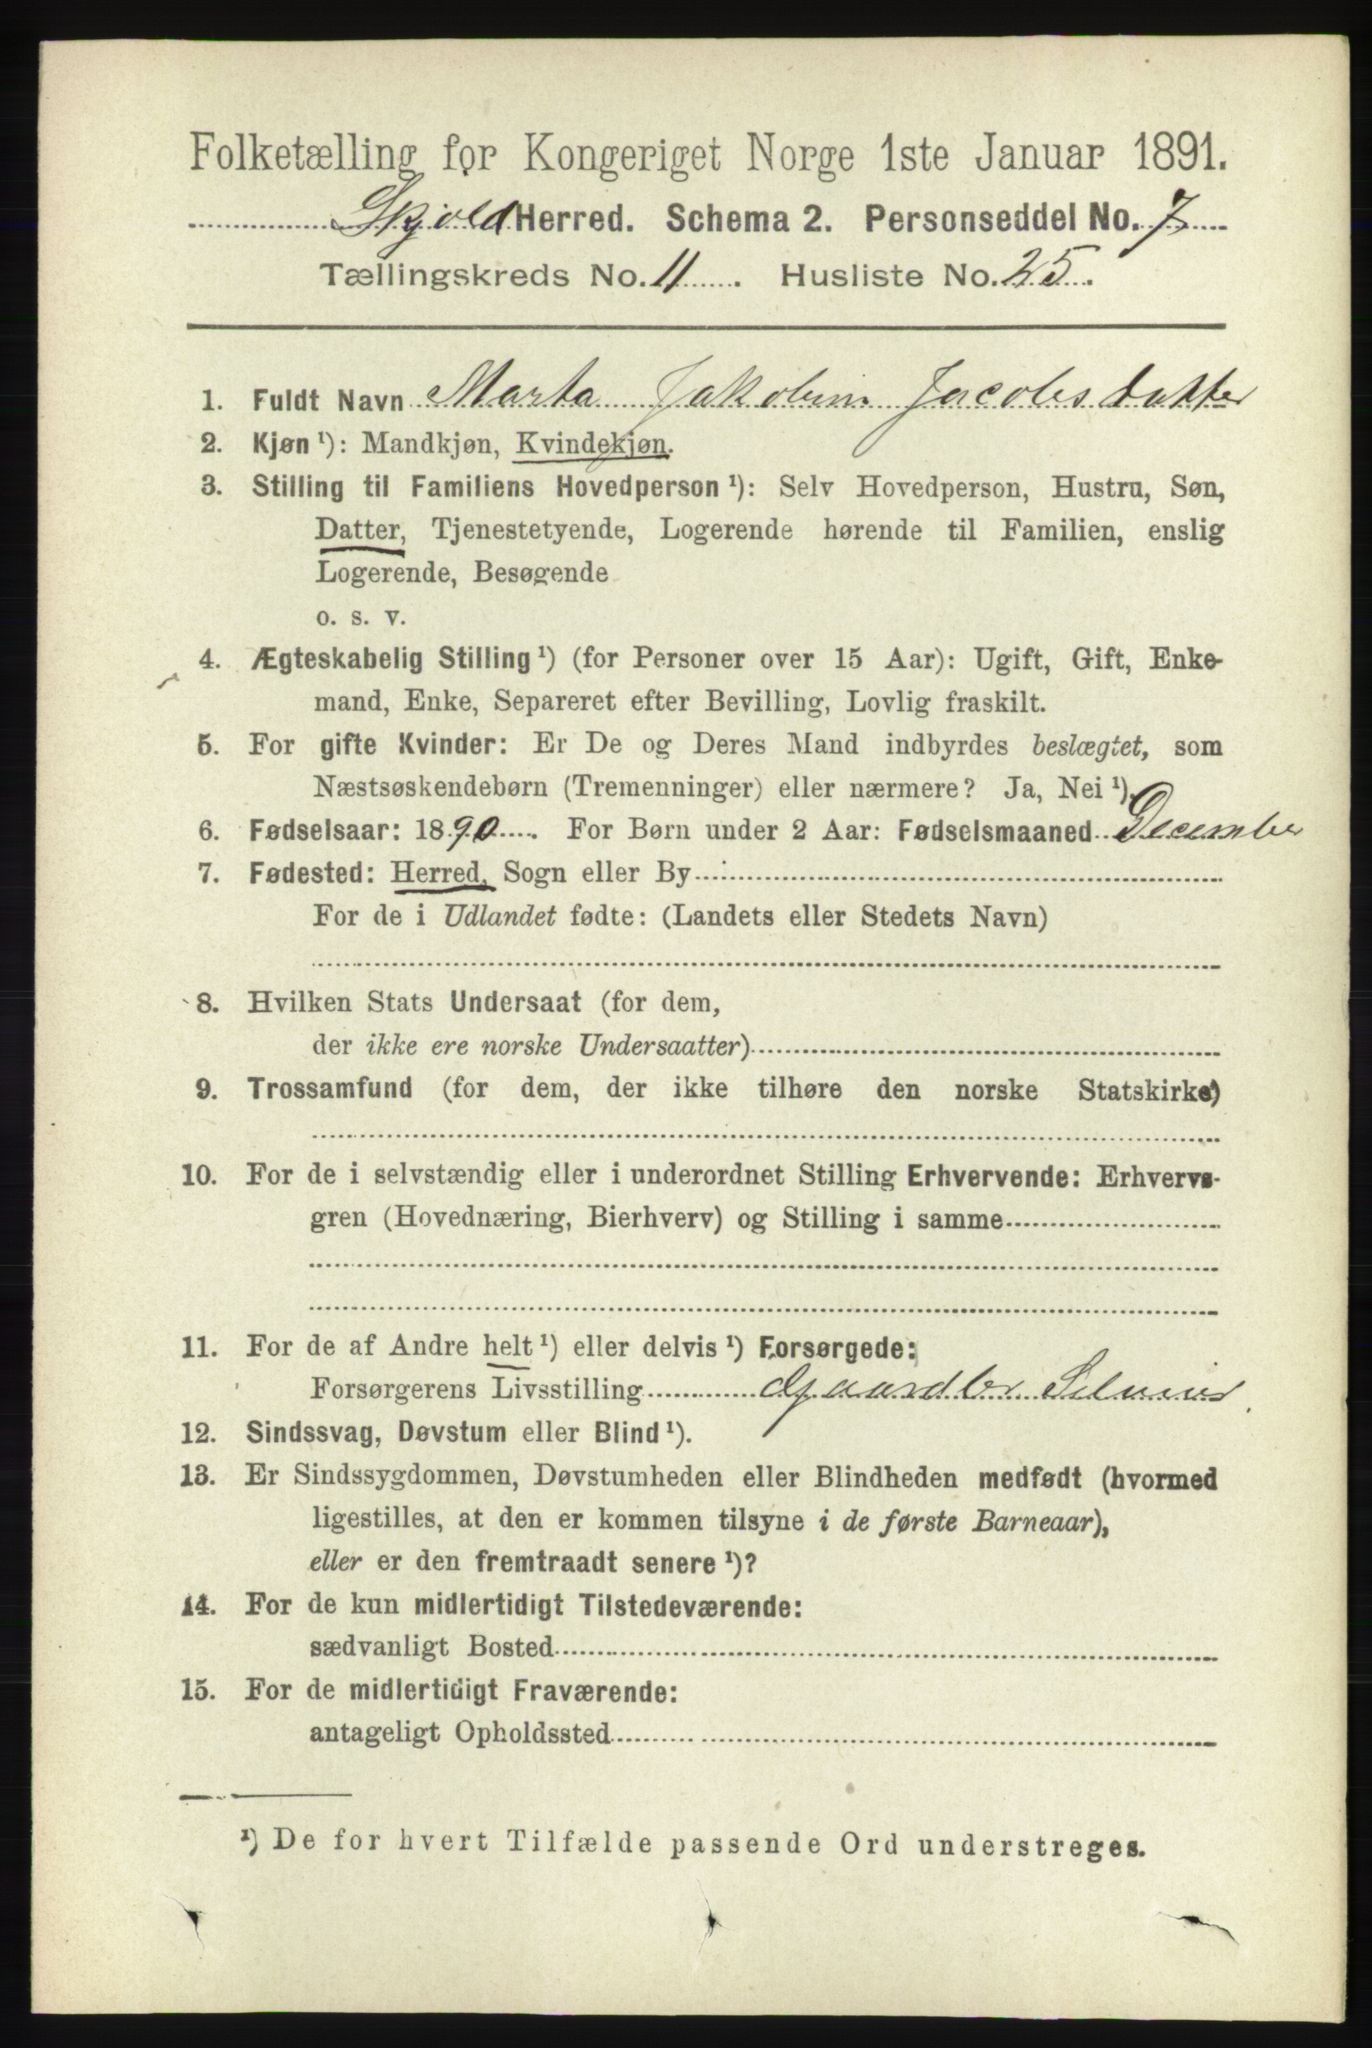 Folketælling for Kongeriget Norge 1ste Januar 1891.
Skjold Herred. Schema 2. Personseddel No. 7
Tællingskreds No. 11. Husliste No. 25.
1. Fuldt Navn Marta Jakobine Jacobsdatter
2. Kjøn ¹): Mandkjøn, Kvindekjøn.
3. Stilling til Familiens Hovedperson ¹): Selv Hovedperson, Hustru, Søn,
Datter, Tjenestetyende, Logerende hørende til Familien, enslig
Logerende, Besøgende
o. s. v.
4. Ægteskabelig Stilling ¹) (for Personer over 15 Aar): Ugift, Gift, Enke-
mand, Enke, Separeret efter Bevilling, Lovlig fraskilt.
5. For gifte Kvinder: Er De og Deres Mand indbyrdes beslægtet, som
Næstsøskendebørn (Tremenninger) eller nærmere? Ja, Nei ¹).
6. Fødselsaar: 1890. For Børn under 2 Aar: Fødselsmaaned December
7. Fødested: Herred, Sogn eller By
For de i Udlandet fødte: (Landets eller Stedets Navn)
8. Hvilken Stats Undersaat (for dem,
der ikke ere norske Undersaatter)
9. Trossamfund (for dem, der ikke tilhøre den norske Statskirke)
10. For de i selvstændig eller i underordnet Stilling Erhvervende: Erhvervs-
gren (Hovednæring, Bierhverv) og Stilling i samme
11. For de af Andre helt ¹) eller delvis ¹) Forsørgede:
Forsørgerens Livsstilling Gaardbr
12. Sindssvag, Døvstum eller Blind ¹).
13. Er Sindssygdommen, Døvstumheden eller Blindheden medfødt (hvormed
ligestilles, at den er kommen tilsyne i de første Barneaar),
eller er den fremtraadt senere ¹)?
14. For de kun midlertidigt Tilstedeværende:
sædvanligt Bosted
15. For de midlertidigt Fraværende:
antageligt Opholdssted
¹) De for hvert Tilfælde passende Ord understreges.